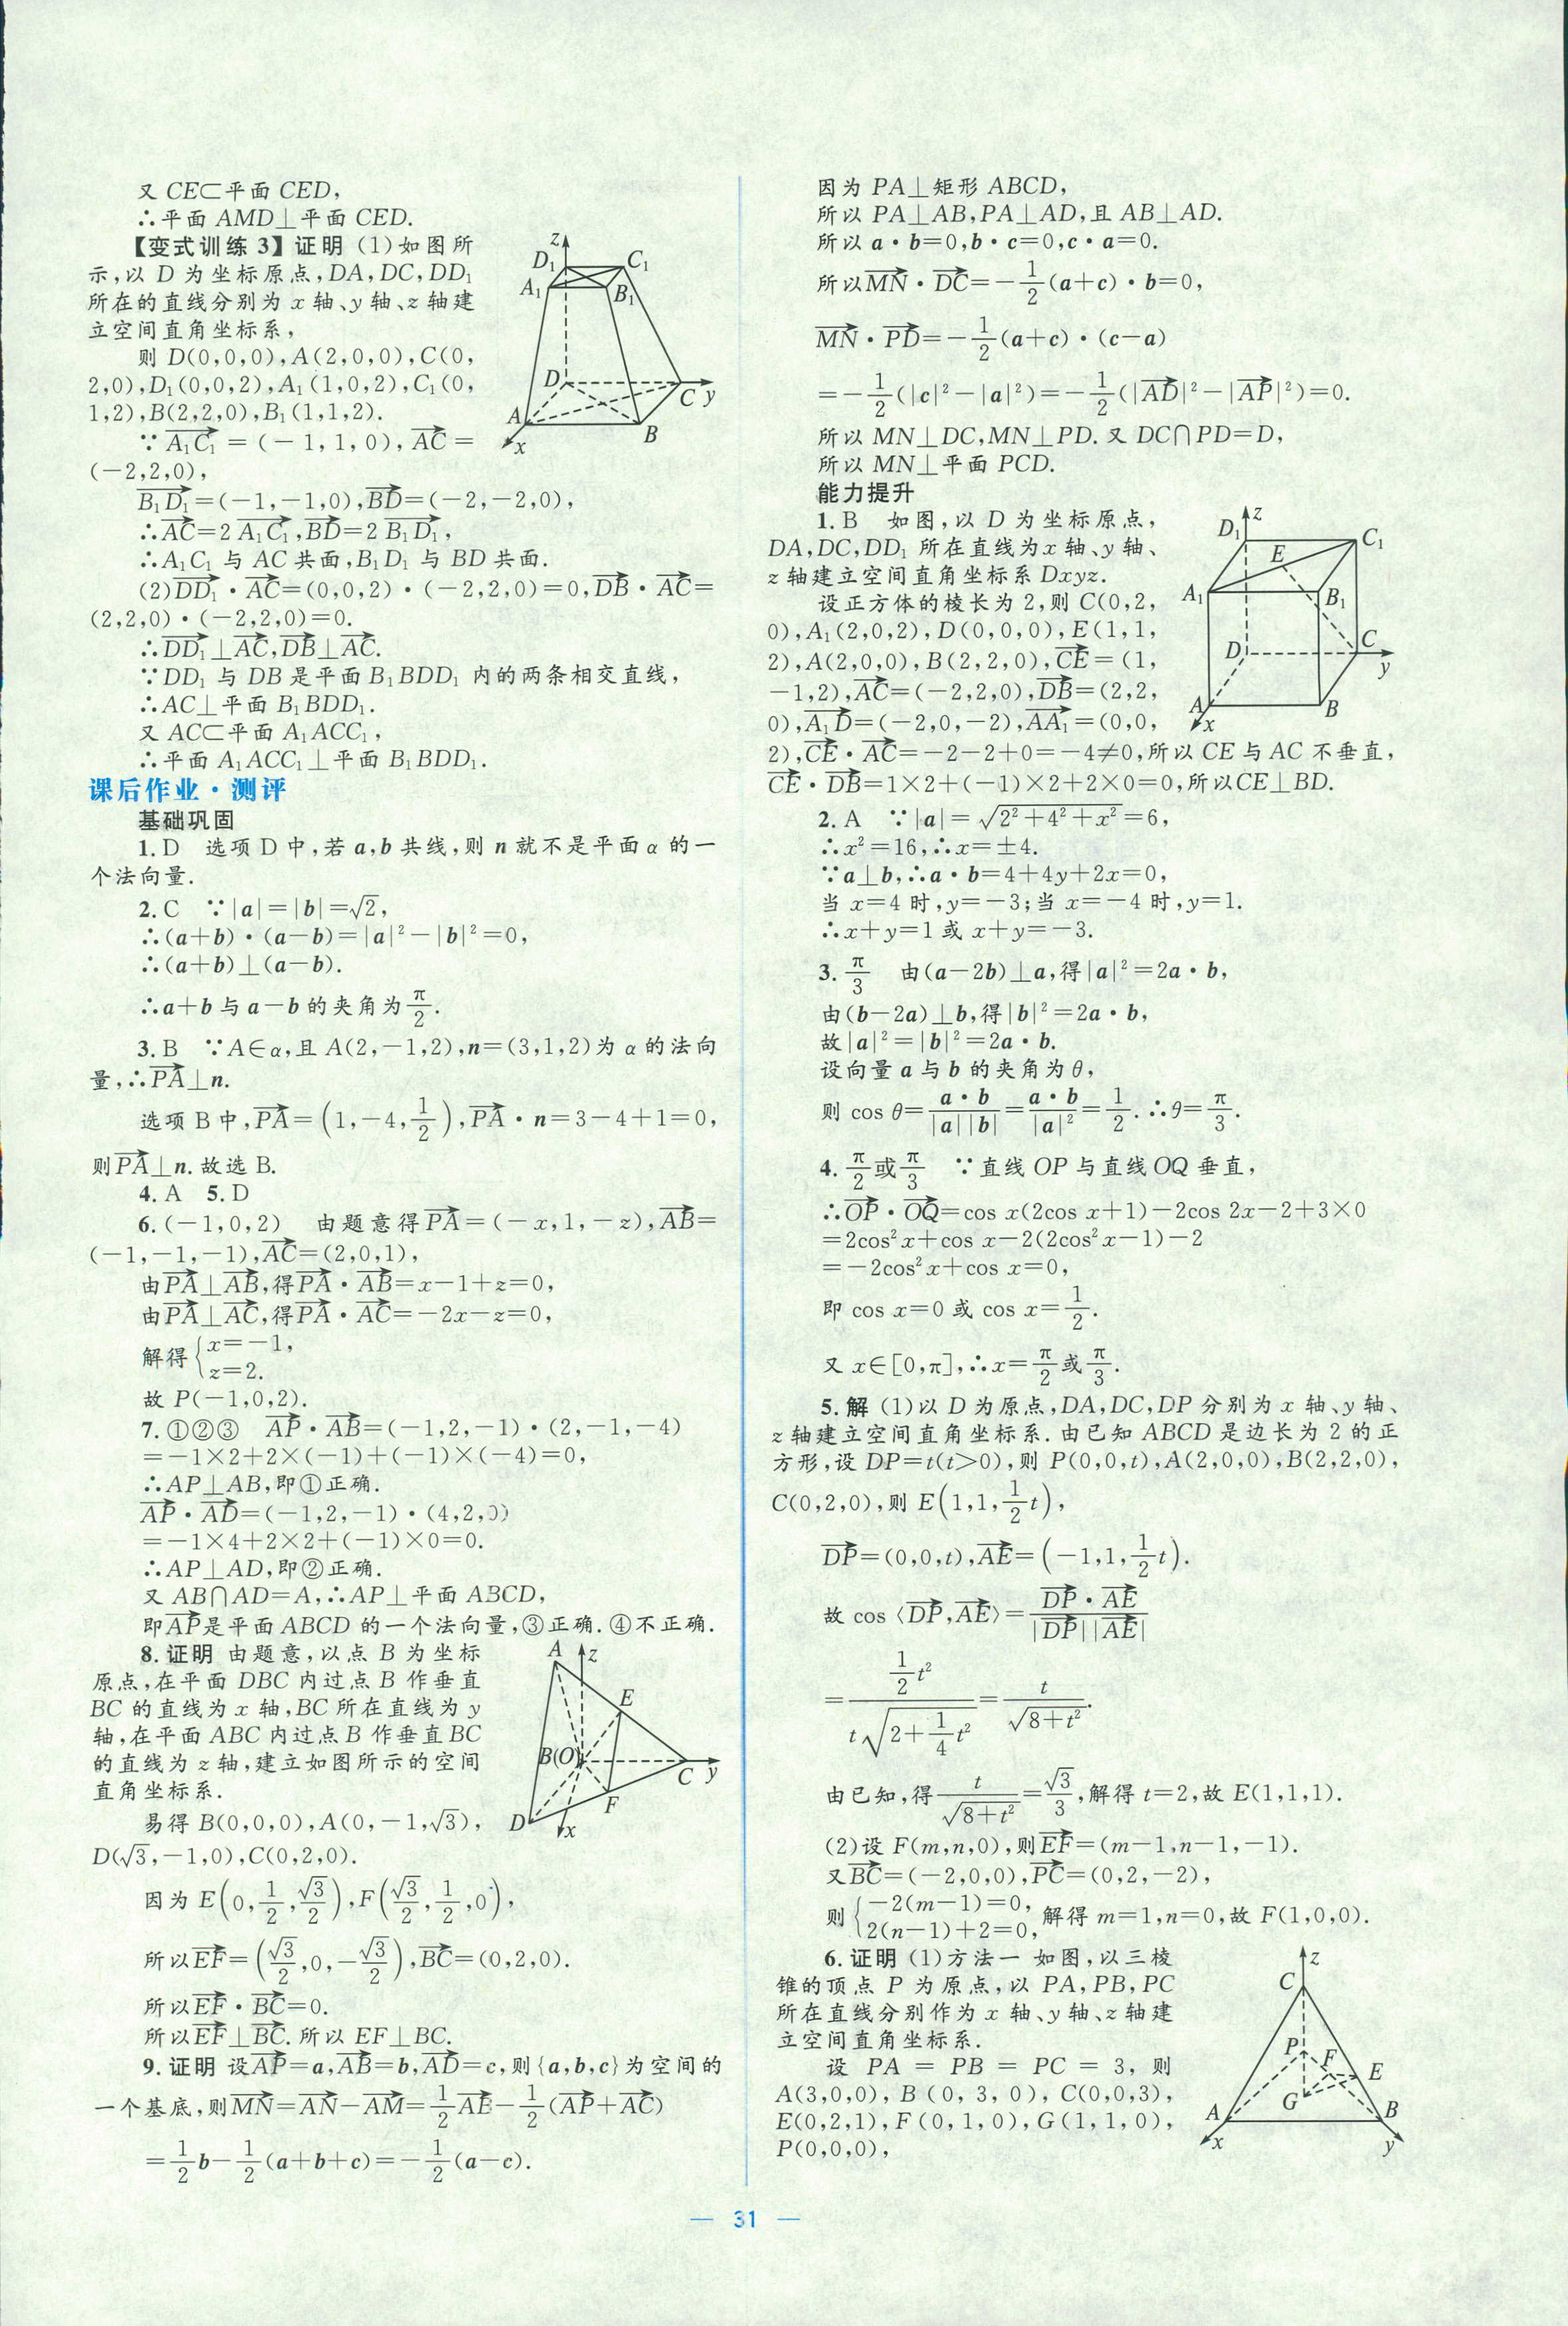 又 CE⊂平面 CED,
∴平面 AMD⊥平面 CED.
【变式训练 3】证明 (1)如图所
示,以 D 为坐标原点,DA,DC,DD₁
所在的直线分别为 x 轴、y 轴、z 轴建
立空间直角坐标系,
则 D(0,0,0),A(2,0,0),C(0,
2,0),D₁(0,0,2),A₁(1,0,2),C₁(0,
1,2),B(2,2,0),B₁(1,1,2).
∵A₁C₁→=(-1,1,0),AC→=
(-2,2,0),
B₁D₁→=(-1,-1,0),BD→=(-2,-2,0),
∴AC→=2A₁C₁→,BD→=2B₁D₁→,
∴A₁C₁ 与 AC 共面,B₁D₁ 与 BD 共面.
(2)DD₁→·AC→=(0,0,2)·(-2,2,0)=0,DB→·AC→=
(2,2,0)·(-2,2,0)=0.
∴DD₁→⊥AC→,DB→⊥AC→.
∵DD₁ 与 DB 是平面 B₁BDD₁ 内的两条相交直线,
∴AC⊥平面 B₁BDD₁.
又 AC⊂平面 A₁ACC₁,
∴平面 A₁ACC₁⊥平面 B₁BDD₁.
z
D₁
C₁
A₁
B₁
D
C y
A
x
B
课后作业·测评
基础巩固
1. D 选项 D 中,若 a,b 共线,则 n 就不是平面 α 的一
个法向量.
2. C ∵|a|=|b|=√2,
∴(a+b)·(a-b)=|a|²-|b|²=0,
∴(a+b)⊥(a-b).
∴a+b 与 a-b 的夹角为 π/2.
3. B ∵A∈α,且 A(2,-1,2),n=(3,1,2)为 α 的法向
量,∴PA→⊥n.
选项 B 中,PA→=(1,-4,1/2),PA→·n=3-4+1=0,
则PA→⊥n. 故选 B.
4. A 5. D
6. (-1,0,2) 由题意得PA→=(-x,1,-z),AB→=
(-1,-1,-1),AC→=(2,0,1),
由PA→⊥AB→,得PA→·AB→=x-1+z=0,
由PA→⊥AC→,得PA→·AC→=-2x-z=0,
解得{x=-1,
z=2.
故 P(-1,0,2).
7. ①②③ AP→·AB→=(-1,2,-1)·(2,-1,-4)
=-1×2+2×(-1)+(-1)×(-4)=0,
∴AP⊥AB,即①正确.
AP→·AD→=(-1,2,-1)·(4,2,0)
=-1×4+2×2+(-1)×0=0.
∴AP⊥AD,即②正确.
又 AB∩AD=A,∴AP⊥平面 ABCD,
即AP→是平面 ABCD 的一个法向量,③正确. ④不正确.
8. 证明 由题意,以点 B 为坐标
原点,在平面 DBC 内过点 B 作垂直
BC 的直线为 x 轴,BC 所在直线为 y
轴,在平面 ABC 内过点 B 作垂直 BC
的直线为 z 轴,建立如图所示的空间
直角坐标系.
易得 B(0,0,0),A(0,-1,√3),
D(√3,-1,0),C(0,2,0).
A z
E
B(O)
C y
F
D
x
因为 E(0,1/2,√3/2),F(√3/2,1/2,0),
所以EF→=(√3/2,0,-√3/2),BC→=(0,2,0).
所以EF→·BC→=0.
所以EF→⊥BC→. 所以 EF⊥BC.
9. 证明 设AP→=a,AB→=b,AD→=c,则{a,b,c}为空间的
一个基底,则MN→=AN→-AM→=1/2AB→-1/2(AP→+AC→)
=1/2b-1/2(a+b+c)=-1/2(a-c).
因为 PA⊥矩形 ABCD,
所以 PA⊥AB,PA⊥AD,且 AB⊥AD.
所以 a·b=0,b·c=0,c·a=0.
所以MN→·DC→=-1/2(a+c)·b=0,
MN→·PD→=-1/2(a+c)·(c-a)
=-1/2(|c|²-|a|²)=-1/2(|AD→|²-|AP→|²)=0.
所以 MN⊥DC,MN⊥PD. 又 DC∩PD=D,
所以 MN⊥平面 PCD.
能力提升
1. B 如图,以 D 为坐标原点,
DA,DC,DD₁ 所在直线为 x 轴、y 轴、
z 轴建立空间直角坐标系 Dxyz.
设正方体的棱长为 2,则 C(0,2,
0),A₁(2,0,2),D(0,0,0),E(1,1,
2),A(2,0,0),B(2,2,0),CE→=(1,
-1,2),AC→=(-2,2,0),DB→=(2,2,
0),A₁D→=(-2,0,-2),AA₁→=(0,0,
2),CE→·AC→=-2-2+0=-4≠0,所以 CE 与 AC 不垂直,
CE→·DB→=1×2+(-1)×2+2×0=0,所以CE⊥BD.
D₁ z
C₁
E
A₁
B₁
D
C
y
A
x
B
2. A ∵|a|=√(2²+4²+x²)=6,
∴x²=16,∴x=±4.
∵a⊥b,∴a·b=4+4y+2x=0,
当 x=4 时,y=-3;当 x=-4 时,y=1.
∴x+y=1 或 x+y=-3.
3. π/3 由(a-2b)⊥a,得|a|²=2a·b,
由(b-2a)⊥b,得|b|²=2a·b,
故|a|²=|b|²=2a·b.
设向量 a 与 b 的夹角为 θ,
则 cos θ=a·b/|a||b|=a·b/|a|²=1/2. ∴θ=π/3.
4. π/2或π/3 ∵直线 OP 与直线 OQ 垂直,
∴OP→·OQ→=cos x(2cos x+1)-2cos 2x-2+3×0
=2cos²x+cos x-2(2cos²x-1)-2
=-2cos²x+cos x=0,
即 cos x=0 或 cos x=1/2.
又 x∈[0,π],∴x=π/2或π/3.
5. 解 (1)以 D 为原点,DA,DC,DP 分别为 x 轴、y 轴、
z 轴建立空间直角坐标系. 由已知 ABCD 是边长为 2 的正
方形,设 DP=t(t>0),则 P(0,0,t),A(2,0,0),B(2,2,0),
C(0,2,0),则 E(1,1,1/2t),
DP→=(0,0,t),AE→=(-1,1,1/2t).
故 cos〈DP→,AE→〉=DP→·AE→/|DP→||AE→|
=1/2t²/t√(2+1/4t²)=t/√(8+t²).
由已知,得t/√(8+t²)=√3/3,解得 t=2,故 E(1,1,1).
(2)设 F(m,n,0),则EF→=(m-1,n-1,-1).
又BC→=(-2,0,0),PC→=(0,2,-2),
则{-2(m-1)=0,
2(n-1)+2=0,解得 m=1,n=0,故 F(1,0,0).
6. 证明 (1)方法一 如图,以三棱
锥的顶点 P 为原点,以 PA,PB,PC
所在直线分别作为 x 轴、y 轴、z 轴建
立空间直角坐标系.
设 PA=PB=PC=3,则
A(3,0,0),B(0,3,0),C(0,0,3),
E(0,2,1),F(0,1,0),G(1,1,0),
P(0,0,0),
z
C
P
F
E
G
A
B
x
y
— 31 —